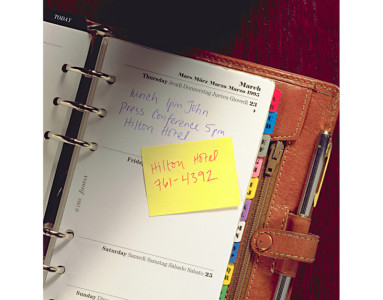 TODAY
March
Mars März Marzo Marzo 1995
Thursday Jeudi Donnerstag Jueves Giovedì 23
lunch 1pm John
Press Conference 5pm
Hilton Hotel
Frida
Hilton Hotel
761-4392
Saturday Samedi Samstag Sábado Sabato 25
Sunday